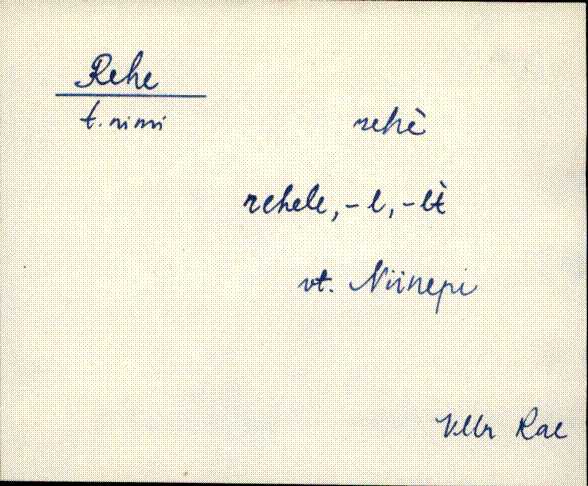 Rehe
t. nimi
rehè
rehele, -l, -lt̀
vt. Niinepi
Rae